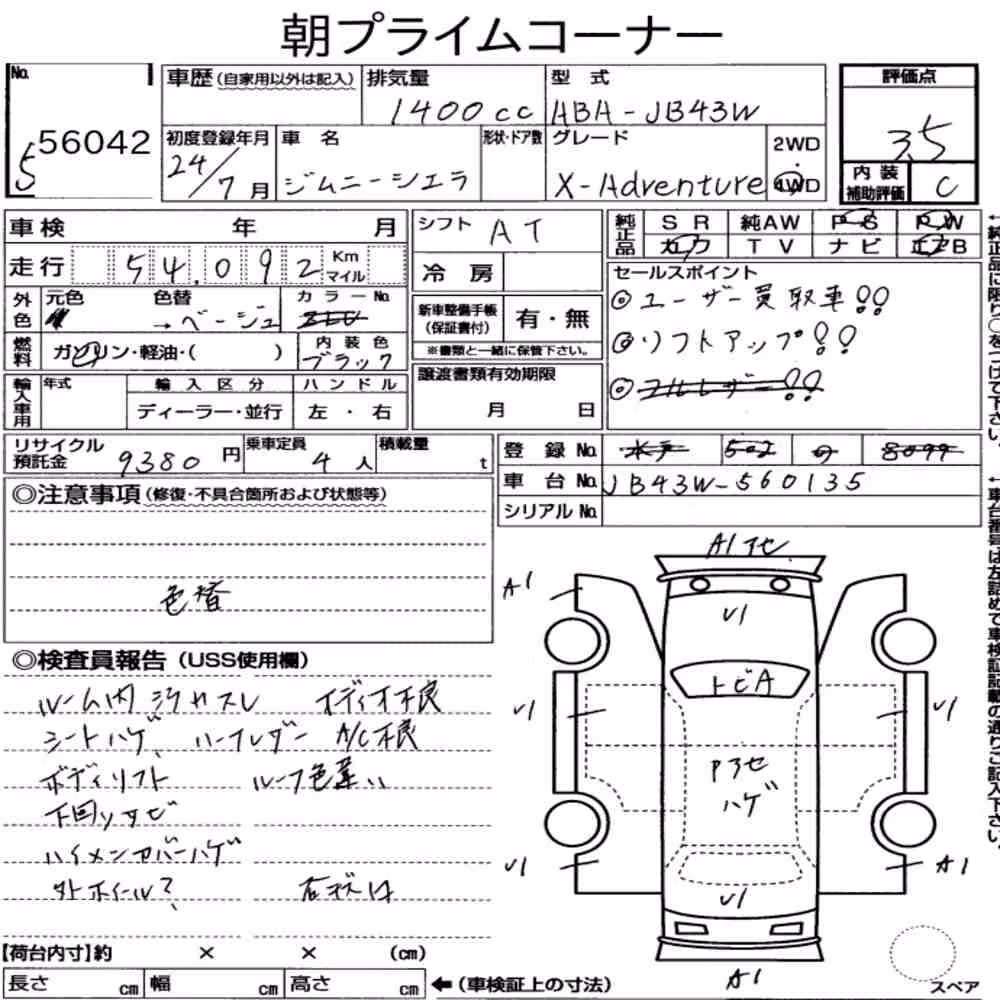 朝プライムコーナー
No. 車歴(自家用以外は記入) 排気量 型 式 評価点
56042 1400cc ABA-JB43W 3.5
5 初度登録年月 車 名 形状・ドア数 グレード 2WD
24/7月 ジムニーシエラ X-Adventure 4WD 内装補助評価 C
車検 年 月 シフト AT 純正品 SR 純AW PS PW
走行 54,092 Km マイル カワ TV ナビ エアB
冷房 セールスポイント
外色 元色 色替 カラーNo. ◎ユーザー買取車!!
→ベージュ 新車整備手帳(保証書付) 有・無 ◎リフトアップ!!
燃料 ガソリン・軽油・( ) 内装色 ブラック ※書類と一緒に保管下さい。
◎フルレザー!!
輸入車用 年式 輸入区分 ハンドル 譲渡書類有効期限
ディーラー・並行 左・右 月 日
リサイクル預託金 9380円 乗車定員 4人 積載量 t 登録No. 水戸 502 8099
車台No. JB43W-560135
◎注意事項(修復・不具合箇所および状態等) シリアルNo.
色替
◎検査員報告(USS使用欄)
ルーム内シケカスレ オーディオ不良
シートハゲ ハーフレザー A/C不良
ボディリフト ルーフ色違い
下回りサビ
ハイメンカバーハゲ
外ホイール?
A1アセ
A1
V1
トビA
V1 V1
Pアセ
ハゲ
V1 A1
V1
A1
【荷台内寸】約 × × (cm)
長さ cm 幅 cm 高さ cm ←(車検証上の寸法)
スペア
↑純正品に限り○をつけて下さい。
↑車台番号は左詰めで車検証記載の通りご記入下さい。